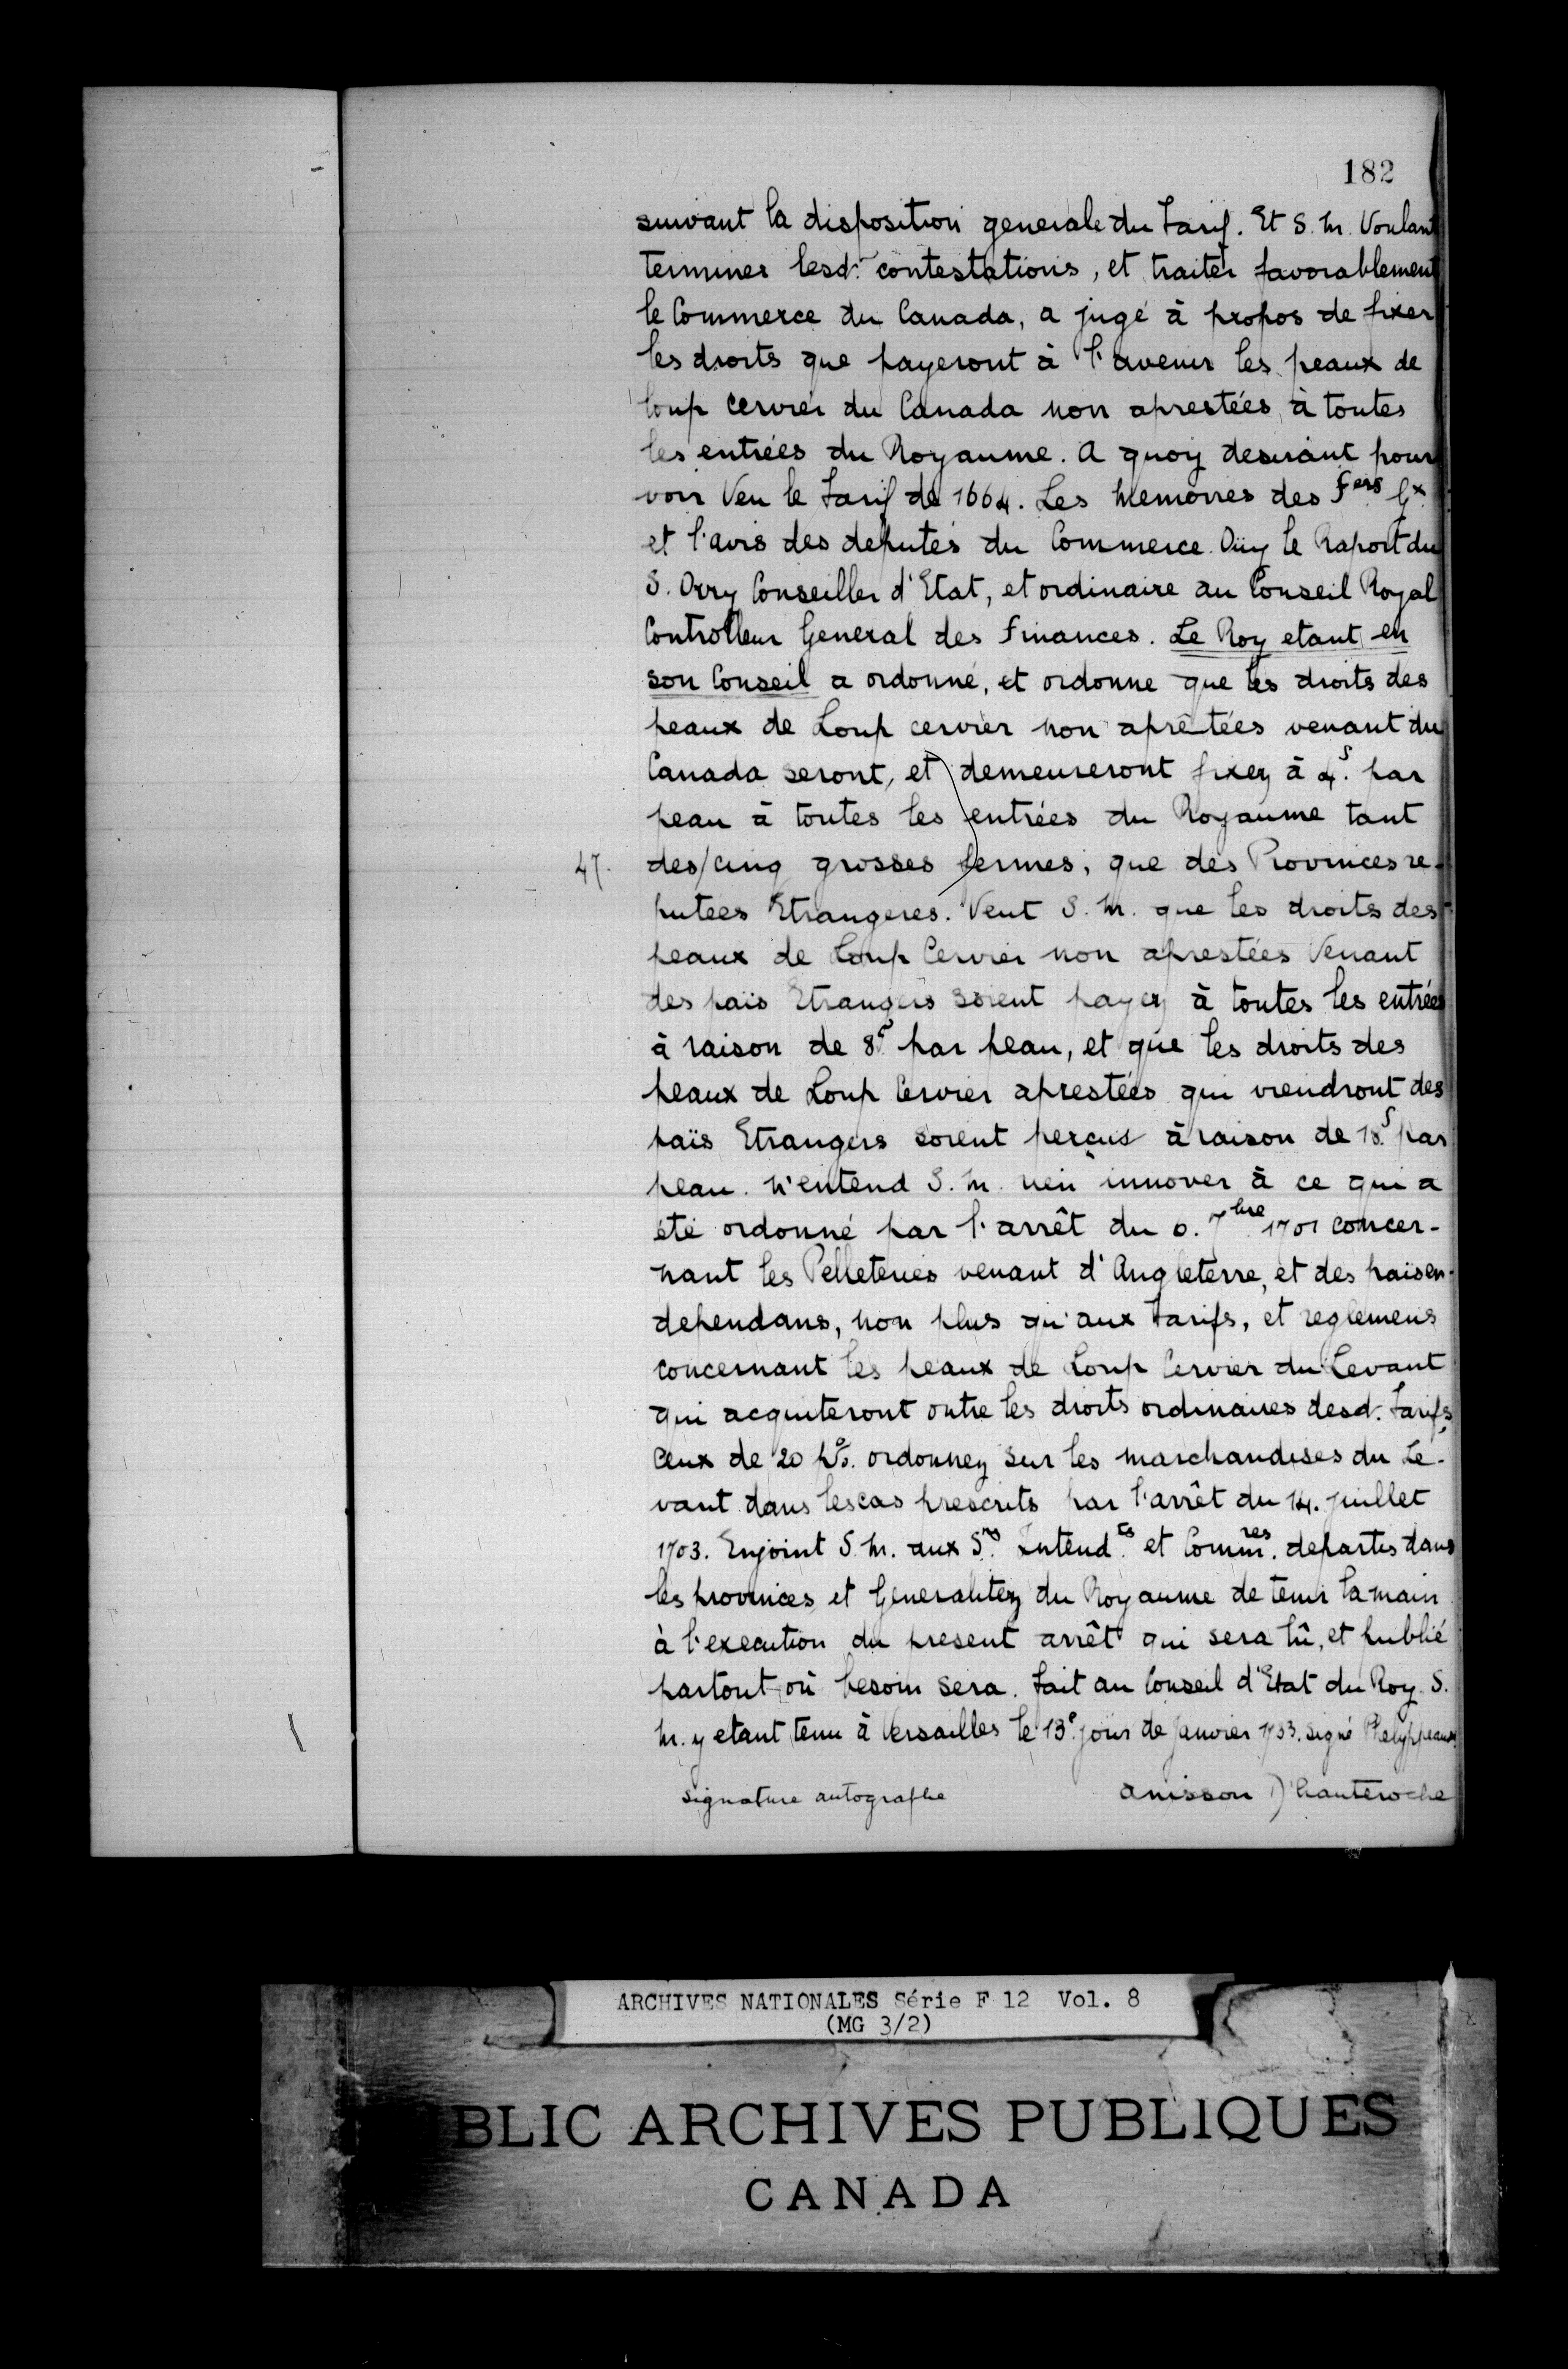 182
suivant la disposition generale du tarif. Et S. M. Voulant
terminer lesd. contestations, et traiter favorablement
le Commerce du Canada, a jugé à propos de fixer
les droits que payeront à l'avenir les peaux de
loup cervier du Canada non aprestées à toutes
les entrées du Royaume. A quoy desirant pour
voir Veu le tarif de 1664. Les Memoires des fers Gx
et l'avis des deputés du Commerce. Oüy le Raport du
S. Orry Conseiller d'Etat, et ordinaire au Conseil Royal
Controlleur General des finances. Le Roy etant en
son Conseil a ordonné, et ordonne que les droits des
peaux de Loup cervier non aprêtées venant du
Canada seront, et demeureront fixez à 4s. par
peau à toutes les entrées du Royaume tant
47. des/cinq grosses fermes, que des Provinces re-
putées Etrangeres. Veut S. M. que les droits des
peaux de Loup Cervier non aprestées Venant
des païs Etrangers soient payez à toutes les entrées
à raison de 8s. par peau, et que les droits des
peaux de Loup Cervier aprestées qui viendront des
païs Etrangers soient perçus à raison de 18s. par
peau. N'entend S. M. rien innover à ce qui a
été ordonné par l'arrêt du 6. 7bre 1701 concer-
nant les Pelleteries venant d'Angleterre, et des païs en-
dependans, non plus qu'aux tarifs, et reglemens
concernant les peaux de Loup Cervier du Levant
qui acquiteront outre les droits ordinaires desd. tarifs,
Ceux de 20 p%. ordonnez sur les marchandises du Le-
vant dans les cas prescrits par l'arrêt du 14. juillet
1703. Enjoint S. M. aux Srs. Intendts. et Commres. departis dans
les provinces et Generalitez du Royaume de tenir la main
à l'execution du present arrêt qui sera lû, et publié
partout où besoin sera. fait au Conseil d'Etat du Roy. S.
M. y etant tenu à Versailles le 13e. jour de Janvier 1733. signé Phelyppeaux.
signature autographe anisson D'hauteroche
ARCHIVES NATIONALES Série F 12 Vol. 8
(MG 3/2)
BLIC ARCHIVES PUBLIQUES
CANADA